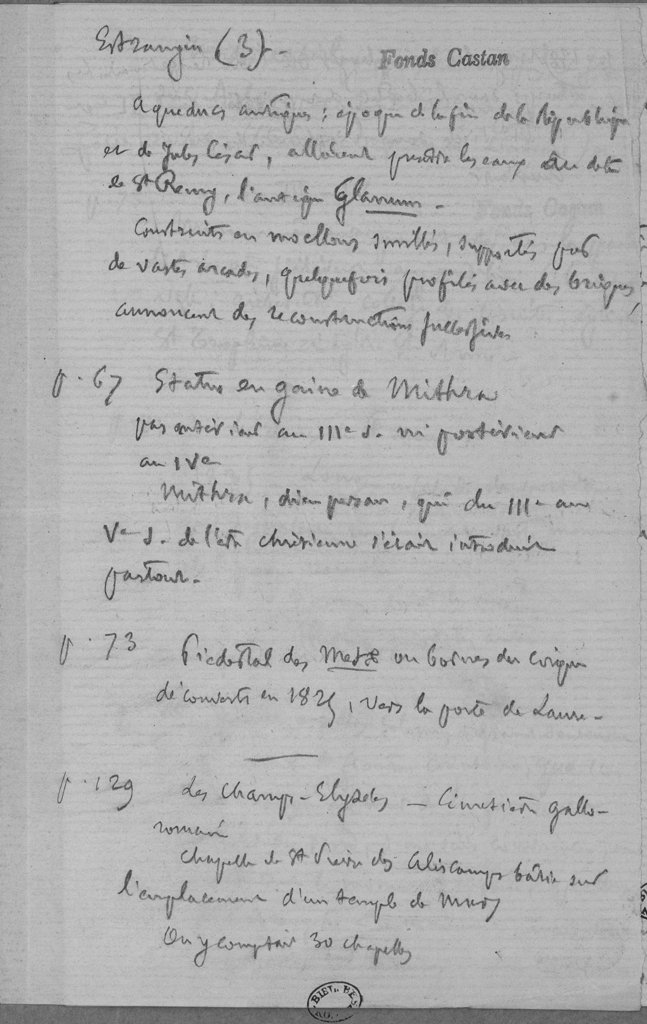 Estrangin (3). -
Fonds Castan
Aqueducs antiques ; époque de la fin de la République
et de Jules César, allaient prendre les eaux au delà
de St Remy, l'antique Glanum -
Construits en moellons smillés, supportés par
de vastes arcades, quelquefois profilés avec des briques,
annoncent des reconstructions successives
p. 67 Statue en gaine de Mithra
pas antérieur au IIIe s. ni postérieur
au IVe
Mithra, dieu persan, qui du IIIe au
Ve s. de l'ère chrétienne s'était introduit
partout. -
p. 73 Piedestal des Metæ ou bornes du cirque
découverts en 1825, vers la porte de Laure -
p. 129 Les Champs-Elysées - Cimetière gallo-
romain
Chapelle de St Pierre des Aliscamps bâtie sur
l'emplacement d'un temple de Mars
On y comptait 30 chapelles